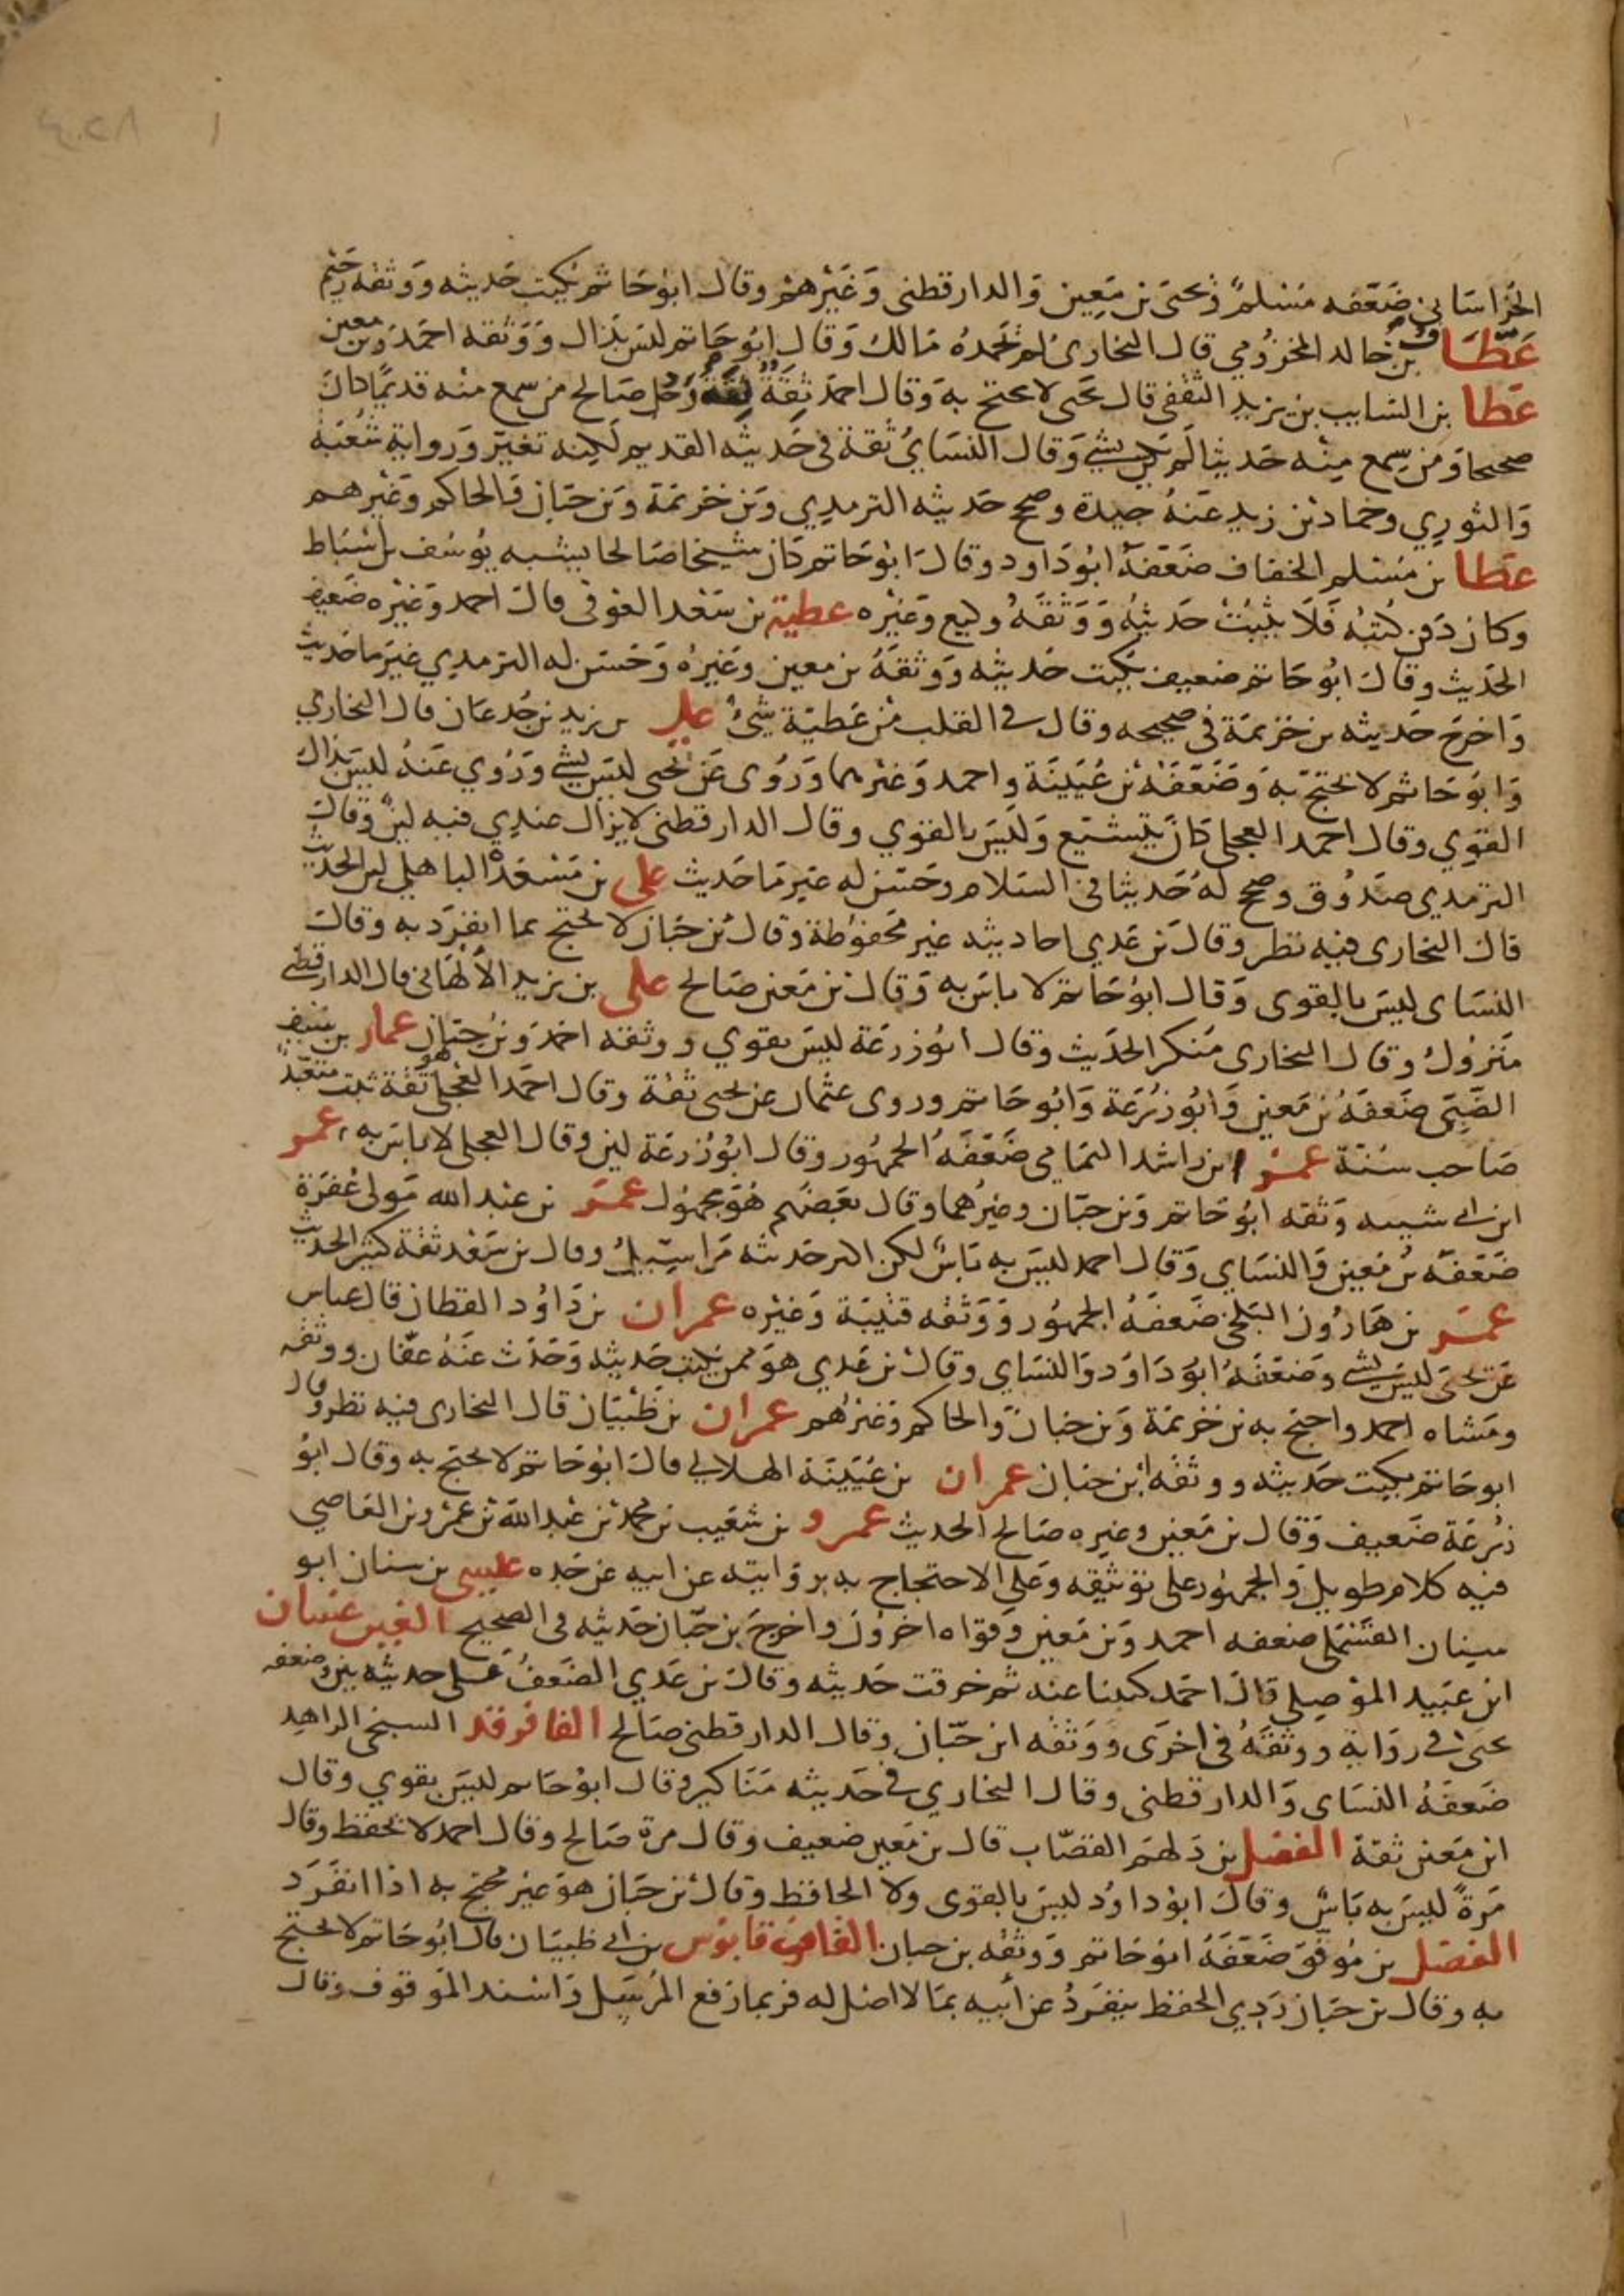 الخراساني ضعفه مسلم ويحيى بن معين والدارقطني وغيرهم وقال ابو حاتم يكتب حديثه ووثقه دحيم
عطاف بن خالد المخزومي قال البخاري لم يحمده مالك وقال ابو حاتم ليس بذاك ووثقه احمد وبن معين
عطا بن السايب بن يزيد الثقفي قال يحيى لا يحتج به وقال احمد ثقة ثقة رجل صالح من سمع منه قديما كان
صحيحا ومن سمع منه حديثا لم يكن بشي وقال النساي ثقة في حديثه القديم لكنه تغير ورواية شعبة
والثوري وحماد بن زيد عنه جيدة وصحح حديثه الترمدي وبن خزيمة وبن حبان والحاكم وغيرهم
عطا بن مسلم الخفاف ضعفه ابو داود وقال ابو حاتم كان شيخا صالحا يشبه يوسف بن اسباط
وكان دفن كتبه فلا يثبت حديثه ووثقه وكيع وغيره عطية بن سعد العوفي قال احمد وغيره ضعيف
الحديث وقال ابو حاتم ضعيف يكتب حديثه ووثقه بن معين وغيره وحسن له الترمدي غير ما حديث
واخرج حديثه بن خزيمة في صحيحه وقال في القلب من عطية شي علي بن يزيد بن جدعان قال البخاري
وابو حاتم لا يحتج به وضعفه بن عيينة واحمد وغيرهما وروى عن يحيى ليس بشي وروي عنه ليس بذاك
القوي وقال احمد العجلي كان يتشيع وليس بالقوي وقال الدارقطني لا يزال عندي فيه لين وقال
الترمدي صدوق وصحح له حديثا في السلام وحسن له غير ما حديث علي بن مسعدة الباهلي لين الحديث
قال البخاري فيه نظر وقال بن عدي احاديثه غير محفوظة وقال بن حبان لا يحتج بما انفرد به وقال
النساى ليس بالقوى وقال ابو حاتم لا باس به وقال بن معين صالح على بن يزيد الألهاني قال الدارقطني
متروك وقال البخارى منكر الحديث وقال ابو زرعة ليس بقوي ووثقه احمد وبن حبان عمار بن سيف
الضبي ضعفه بن معين وابو زرعة وابو حاتم وروى عثمان عن يحيى ثقة وقال احمد العجلي هو ثقة ثبت متعبد
صاحب سنة عمر ابن راشد اليمامي ضعفه الجمهور وقال ابو زرعة لين وقال العجلي لا باس به عمر
ابن ابي شيبه وثقه ابو حاتم وبن حبان وغيرهما وقال بعضهم هو مجهول عمر بن عبد الله مولى غفرة
ضعفه بن معين والنساي وقال احمد ليس به باس لكن اكثر حديثه مراسيل وقال بن سعد ثقة كثير الحديث
عمر بن هارون البلخي ضعفه الجمهور ووثقه قتيبة وغيره عمران بن داود القطان قال عباس
عن يحيى ليس بشي وضعفه ابو داود والنساي وقال بن عدي هو ممن يكتب حديثه وحدث عنه عفان ووثقه
ومشاه احمد واحتج به بن خزيمة وبن حبان والحاكم وغيرهم عمران بن ظبيان قال البخارى فيه نظر وقال
ابو حاتم يكتب حديثه ووثقه ابن حبان عمران بن عيينة الهلالي قال ابو حاتم لا يحتج به وقال ابو
زرعة ضعيف وقال بن معين وغيره صالح الحديث عمرو بن شعيب بن محمد بن عبد الله بن عمرو بن العاصي
فيه كلام طويل والجمهور على توثيقه وعلى الاحتجاج به بروايته عن ابيه عن جده عيسى بن سنان ابو
سنان القسملي ضعفه احمد وبن معين وقواه اخرون واخرج بن حبان حديثه في الصحيح الغين غسان
ابن عبيد الموصلي قال احمد كتبنا عنه ثم خرقت حديثه وقال بن عدي الضعف على حديثه بين وضعفه
يحيى في رواية ووثقه في اخرى ووثقه ابن حبان وقال الدارقطني صالح الفا فرقد السبخي الزاهد
ضعفه النساى والدارقطني وقال البخاري في حديثه مناكير وقال ابو حاتم ليس بقوي وقال
ابن معين ثقة الفضل بن دلهم القصاب قال بن معين ضعيف وقال مرة صالح وقال احمد لا يحفظ وقال
مرة ليس به باس وقال ابو داود ليس بالقوى ولا الحافظ وقال بن حبان هو غير محتج به اذا انفرد
الفضل بن موفق ضعفه ابو حاتم ووثقه بن حبان القاف قابوس بن ابي ظبيان قال ابو حاتم لا يحتج
به وقال بن حبان ردي الحفظ ينفرد عن ابيه بما لا اصل له فربما رفع المرسل واسند الموقوف وقال